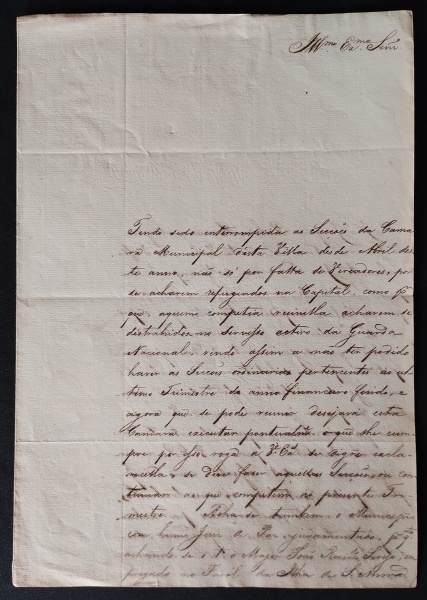 Illmo. Exmo. Senr.
Tendo sido enterrompida as Sessões da Cama
ra Municipal desta Villa desde Abril des
te anno, não só por falta de Vereadores, por
se acharem refugiados na Capital, como pr.
que, aquem competia reunilla acharem se
destrahidos no Servisso activo da Guarda
Nacional, vindo assim a não ter podido
haver as Sessões ordinarias pertencentes ao ul
timo Trimestre do anno financeiro findo, e
agora que se pode reunir desejará esta
Camara executar pontualmte. o que lhe cum
pre por isso roga a V. Exa. se digne escla
recella, se deve fazer aquellas Sessões, ou con
tinuar as que competem no presente Tri
mestre. Acha-se tambem o Municipio
com hum Juiz de Paz juramentado, pr. q.
achando-se o 1º o Major João em
pregado no Farol da Ilha de S.